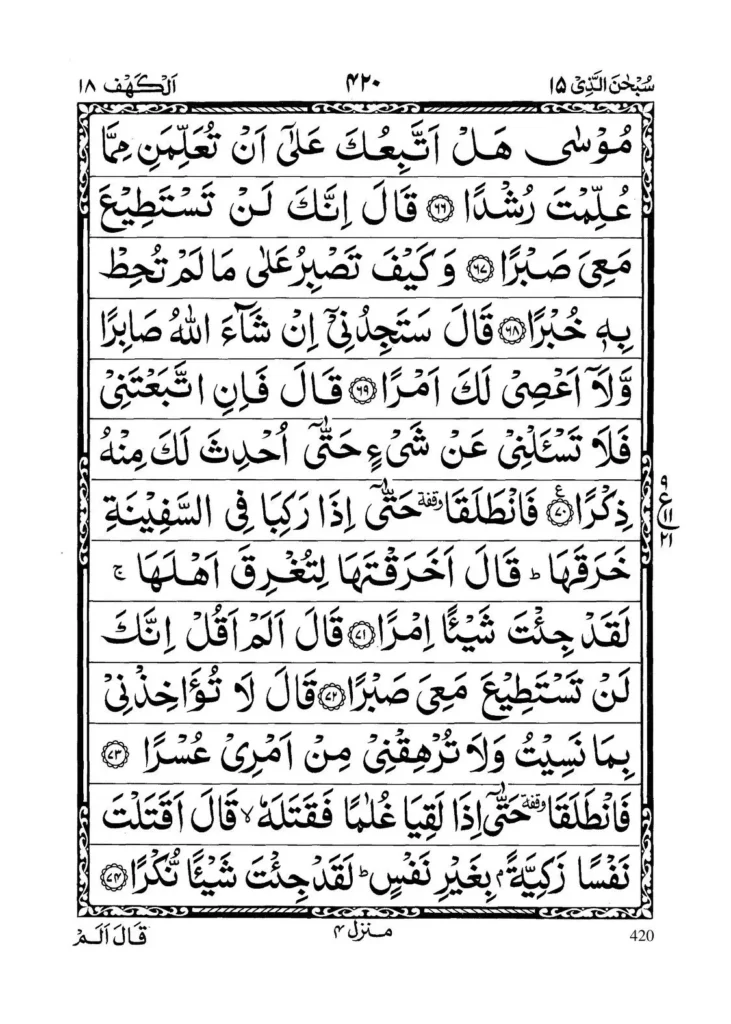 سُبْحٰنَ الَّذِیْ ۱۵ ۴۲۰ اَلْكَهْف ۱۸
مُوْسٰى هَلْ اَتَّبِعُكَ عَلٰۤى اَنْ تُعَلِّمَنِ مِمَّا
عُلِّمْتَ رُشْدًا ۶۶ قَالَ اِنَّكَ لَنْ تَسْتَطِیْعَ
مَعِیَ صَبْرًا ۶۷ وَكَیْفَ تَصْبِرُ عَلٰى مَا لَمْ تُحِطْ
بِهٖ خُبْرًا ۶۸ قَالَ سَتَجِدُنِیْۤ اِنْ شَآءَ اللّٰهُ صَابِرًا
وَّلَاۤ اَعْصِیْ لَكَ اَمْرًا ۶۹ قَالَ فَاِنِ اتَّبَعْتَنِیْ
فَلَا تَسْـَٔلْنِیْ عَنْ شَیْءٍ حَتّٰۤى اُحْدِثَ لَكَ مِنْهُ
ذِكْرًا ۷۰ ع فَانْطَلَقَا وقفة حَتّٰۤى اِذَا رَكِبَا فِی السَّفِیْنَةِ
خَرَقَهَا ؕ قَالَ اَخَرَقْتَهَا لِتُغْرِقَ اَهْلَهَا ۚ
لَقَدْ جِئْتَ شَیْـًٔا اِمْرًا ۷۱ قَالَ اَلَمْ اَقُلْ اِنَّكَ
لَنْ تَسْتَطِیْعَ مَعِیَ صَبْرًا ۷۲ قَالَ لَا تُؤَاخِذْنِیْ
بِمَا نَسِیْتُ وَلَا تُرْهِقْنِیْ مِنْ اَمْرِیْ عُسْرًا ۷۳
فَانْطَلَقَا وقفة حَتّٰۤى اِذَا لَقِیَا غُلٰمًا فَقَتَلَهٗ ۙ قَالَ اَقَتَلْتَ
نَفْسًا زَكِیَّةًۢ بِغَیْرِ نَفْسٍ ؕ لَقَدْ جِئْتَ شَیْـًٔا نُّكْرًا ۷۴
۹
ع
۱۱
۲۱
420 منزل ۴ قَالَ اَلَمْ